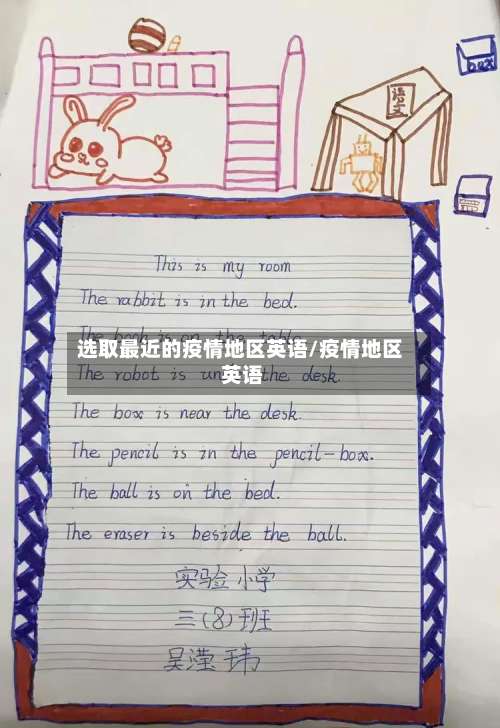 语文
box
This is my room
The rabbit is in the bed.
The book is on the table.
选取最近的疫情地区英语/疫情地区
英语
The robot is under the desk.
The box is near the desk.
The pencil is in the pencil-box.
The ball is on the bed.
The eraser is beside the ball.
实验小学
三(8)班
吴滢玮